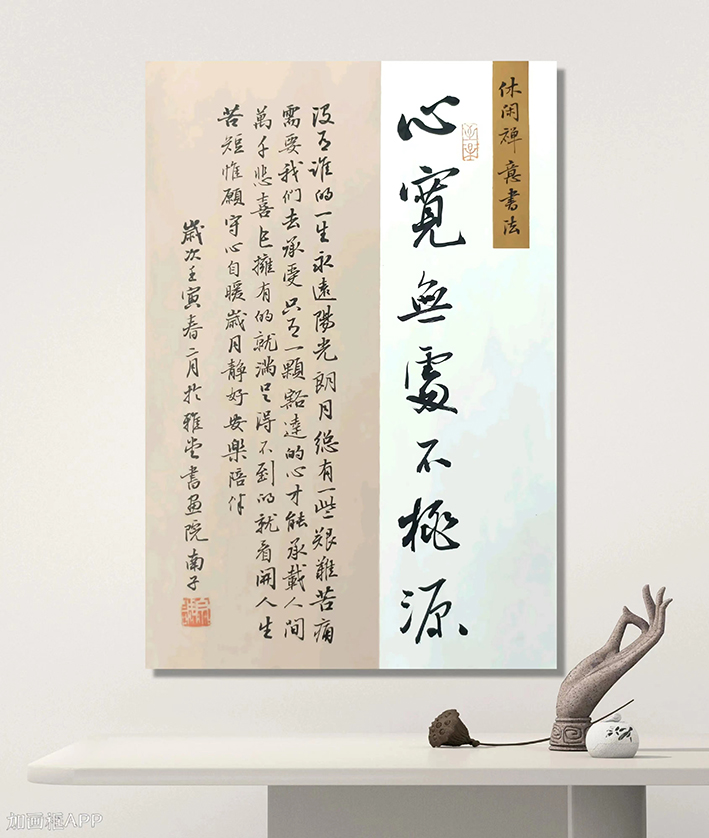 休闲禅意書法
心寬無處不桃源
没有谁的一生永遠陽光朗月總有一些艰難苦痛
需要我们去承受只有一顆豁達的心才能承載人间
萬千悲喜已擁有的就满足得不到的就看開人生
苦短惟願守心自暖歲月靜好安樂陪伴
歲次壬寅春二月於雅堂書画院南子
如画框APP